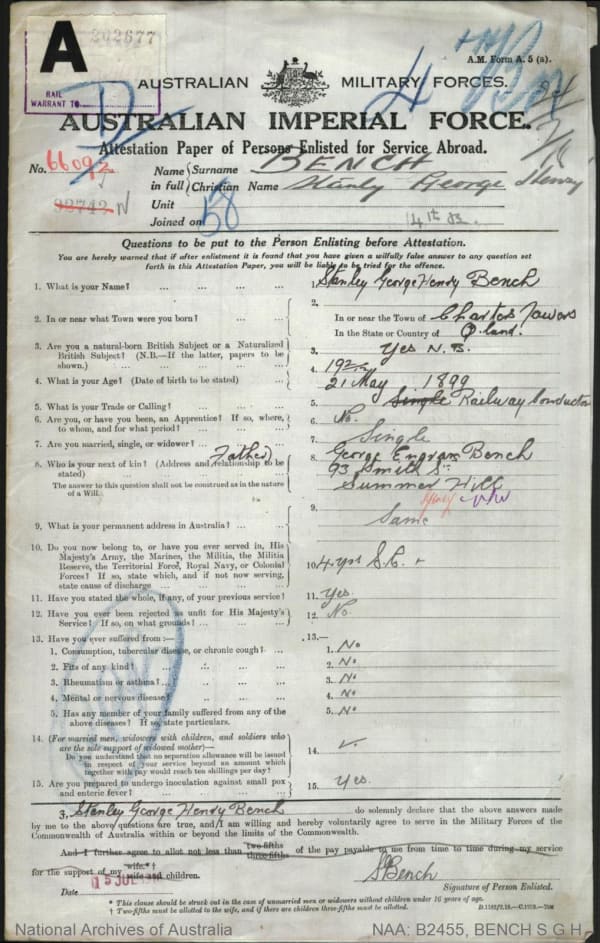 A
202677
RAIL
WARRANT TO
A.M. Form A. 5 (a).
AUSTRALIAN MILITARY FORCES.
AUSTRALIAN IMPERIAL FORCE.
Attestation Paper of Persons Enlisted for Service Abroad.
No. 66092
92742 N
Name in full { Surname BENCH
Christian Name Stanly George Henry
Unit
Joined on
58
Questions to be put to the Person Enlisting before Attestation.
You are hereby warned that if after enlistment it is found that you have given a wilfully false answer to any question set
forth in this Attestation Paper, you will be liable to be tried for the offence.
1. What is your Name? ... 1. Stanley George Henry Bench
2. In or near what Town were you born? ... 2. In or near the Town of Charters Towers
In the State or Country of Q.land.
3. Are you a natural-born British Subject or a Naturalized
British Subject? (N.B.—If the latter, papers to be
shown.) ... 3. Yes N.B.
4. What is your Age? (Date of birth to be stated) ... 4. 19
21 May 1899
5. What is your Trade or Calling? ... 5. Single Railway Conductor
6. Are you, or have you been, an Apprentice? If so, where,
to whom, and for what period? ... 6. No.
7. Are you married, single, or widower? ... 7. Single
8. Who is your next of kin? (Address and relationship to be
stated) ... Father
The answer to this question shall not be construed as in the nature
of a Will.
8. George Bench
93 Smith St
Summer Hill
9. What is your permanent address in Australia? ... 9. Same
10. Do you now belong to, or have you ever served in, His
Majesty's Army, the Marines, the Militia, the Militia
Reserve, the Territorial Force, Royal Navy, or Colonial
Forces? If so, state which, and if not now serving,
state cause of discharge ... 10. 4 yrs S.C.
11. Have you stated the whole, if any, of your previous service? 11. Yes.
12. Have you ever been rejected as unfit for His Majesty's
Service? If so, on what grounds? ... 12. No.
13. Have you ever suffered from:— 13.—
1. Consumption, tubercular disease, or chronic cough? ... 1. No
2. Fits of any kind? ... 2. No
3. Rheumatism or asthma? ... 3. No
4. Mental or nervous disease? ... 4. No
5. Has any member of your family suffered from any of the
above diseases? If so, state particulars. 5. No
14. (For married men, widowers with children, and soldiers who
are the sole support of widowed mother)—
Do you understand that no separation allowance will be issued
in respect of your service beyond an amount which
together with pay would reach ten shillings per day? 14.
15. Are you prepared to undergo inoculation against small pox
and enteric fever? ... 15. Yes.
I, Stanley George Henry Bench do solemnly declare that the above answers made
by me to the above questions are true, and I am willing and hereby voluntarily agree to serve in the Military Forces of the
Commonwealth of Australia within or beyond the limits of the Commonwealth.
And I further agree to allot not less than two-fifths three-fifths of the pay payable to me from time to time during my service
for the support of my wife.*† wife and children.
SBench
Date 15 JUL
Signature of Person Enlisted.
* This clause should be struck out in the case of unmarried men or widowers without children under 16 years of age.
† Two-fifths must be allotted to the wife, and if there are children three-fifths must be allotted.
National Archives of Australia
NAA: B2455, BENCH S G H